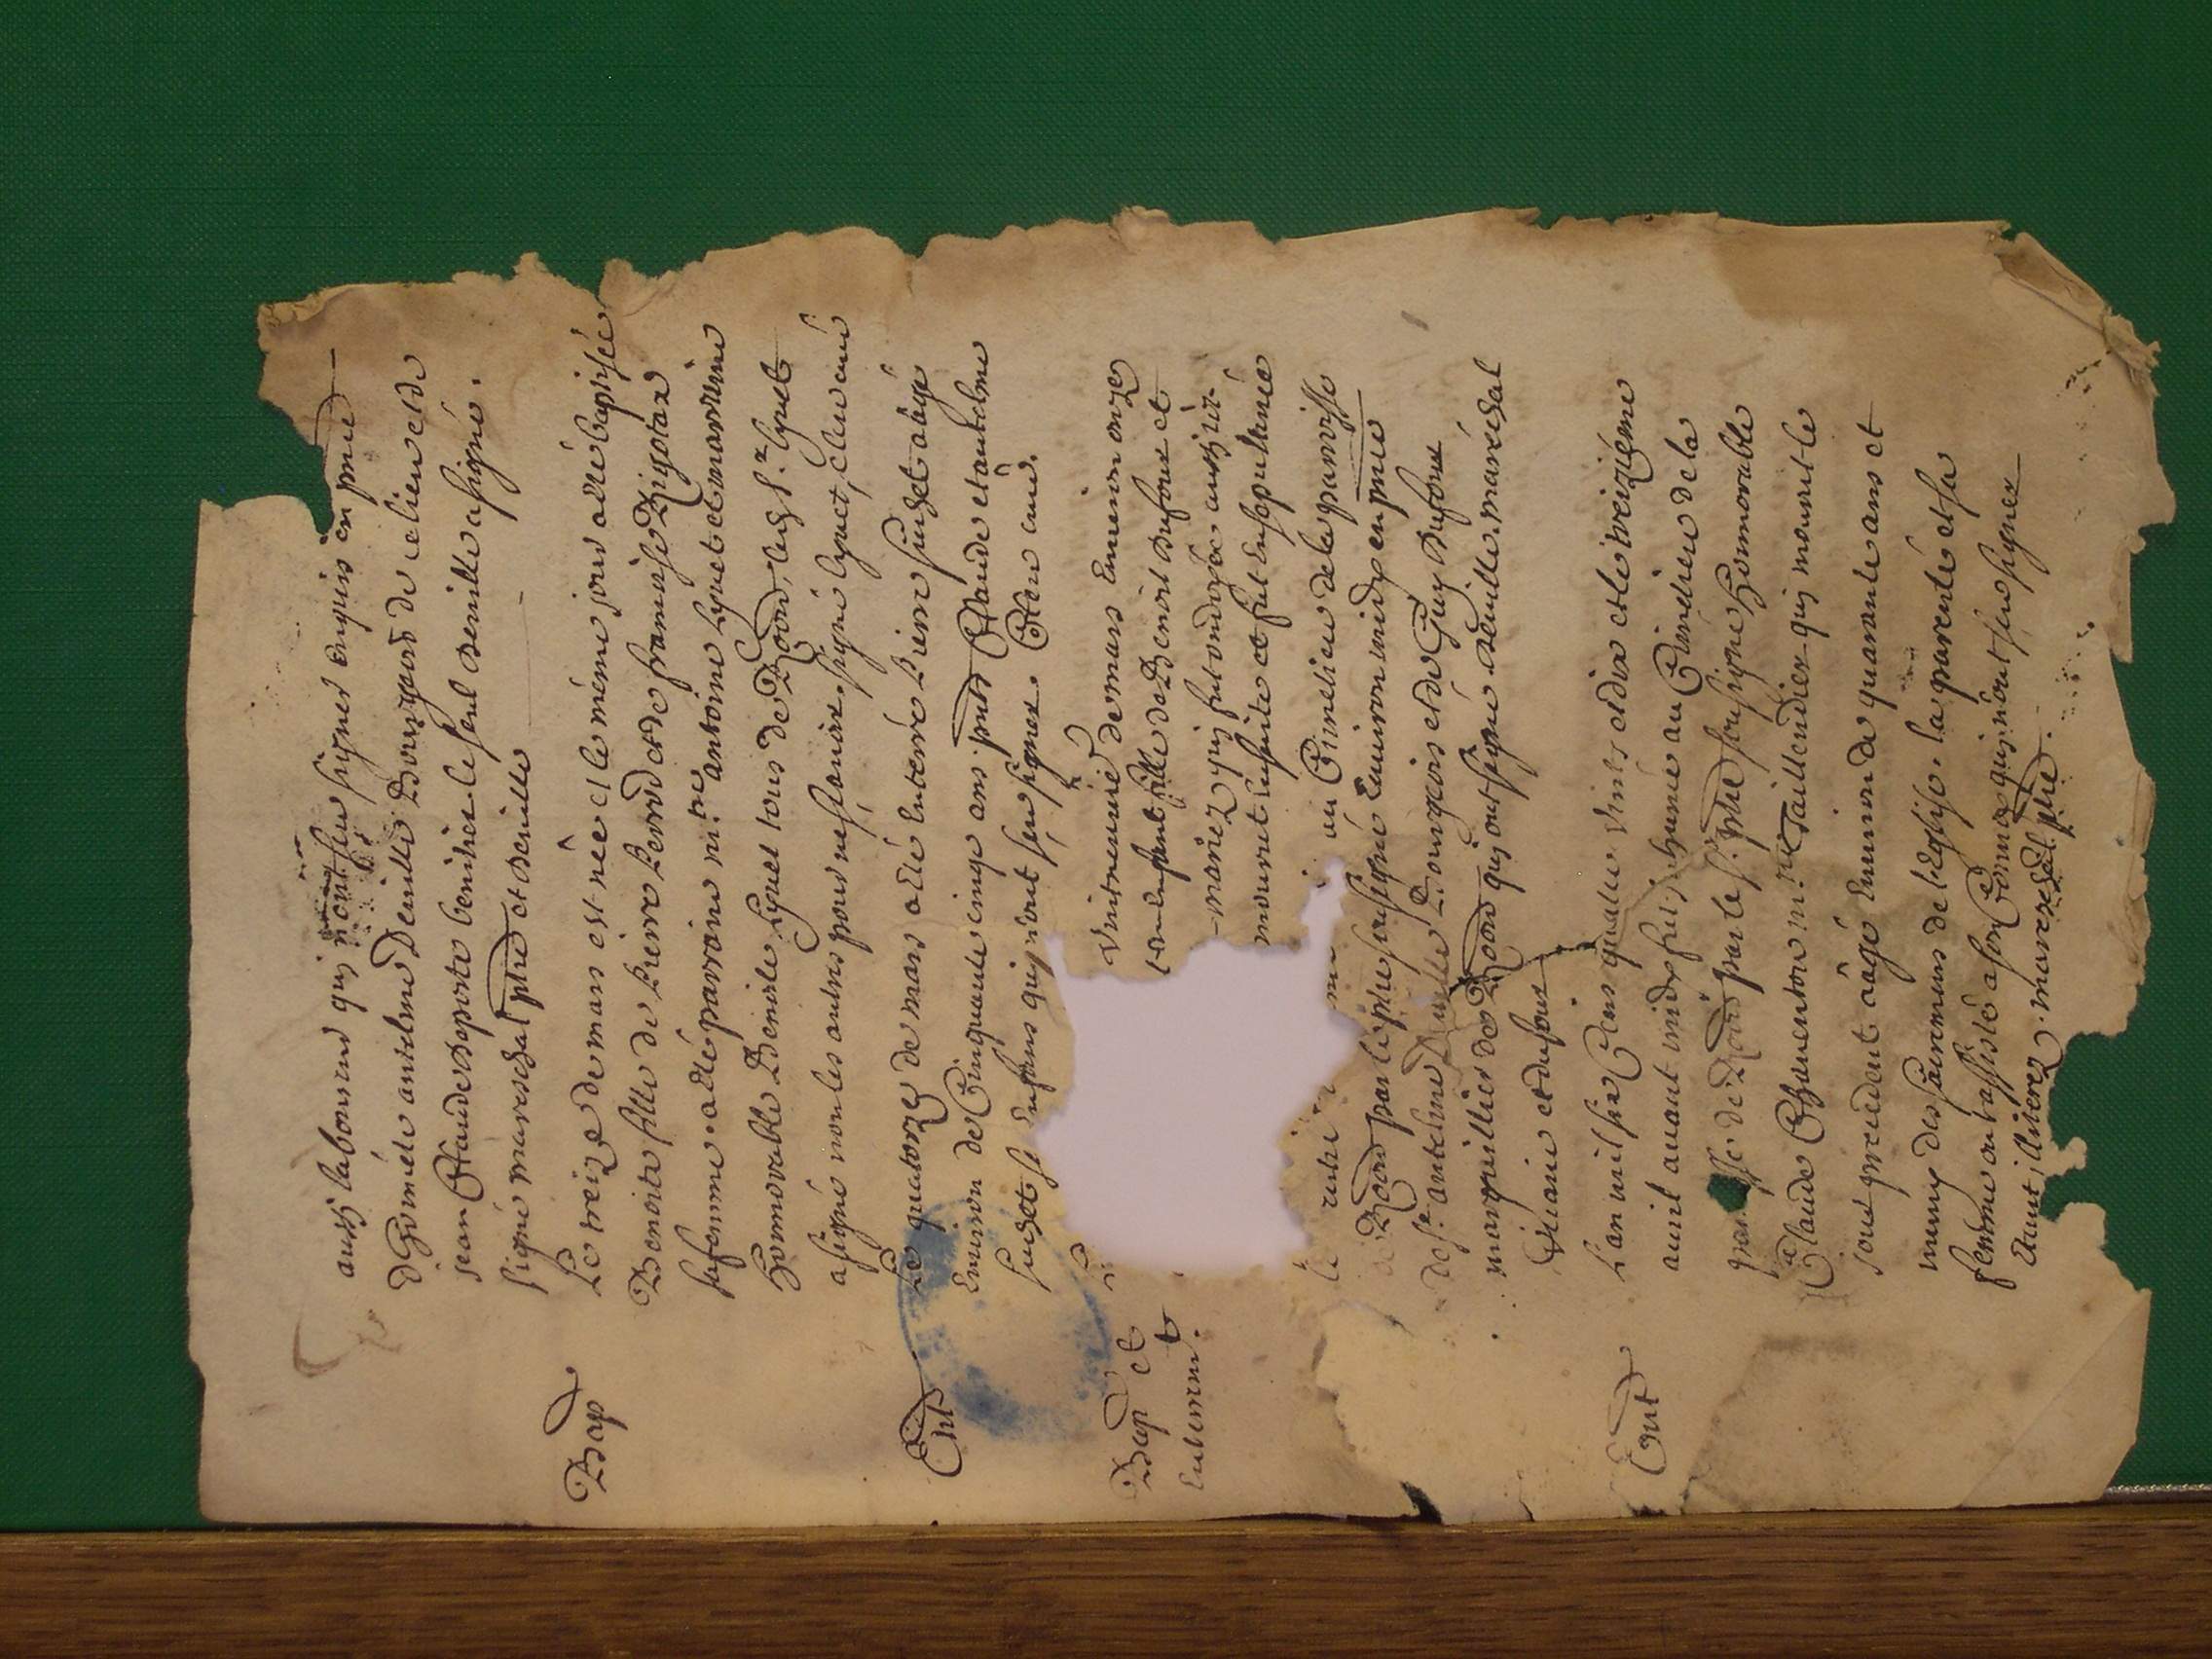 aussy laboureur quy n'ont sceu signer enquis en pnce
d'homete antelme Deville Bourgeois de ce lieu et de
jean Claude deporte benitier le seul deville a signé.
signé mareschal ptre et deville
Bap
Le treize de mars est née et le même jour a été baptisée
Benoite fille de Pierre Perod et de françoise Rigotaz
sa femme. a été parrain m.re antoine Lyvet et marraine
honnorable Benoite Lyvet tous de Rodd, led s.r Lyvet
a signé non les autres pour ne scavoir. signé Lyvet, Clerc curé
Ent
Le quatorze de mars a été Enterré Pierre suchet aagé
Environ de Cinquante cinq ans pnts Claude et antelme
suchet ses enfans quy n'ont sceu signer. Clerc curé.
Bap et
Enterem.t
vintneuvie de mars Environ onze
enfant fille de Benoit dufour et
mariez quy fut ondoyée aussytot
mourut ensuite et fut ensepulturée
au Cimetiere de la parroisse
par le ptre soussigné Environ midy en pnce
de s.r antelme Deville Bourgeois et de Guy dufour
marguillier de quy ont signé deville. mareschal
vicaire et dufour
Ent
L'an mil six Cens quatre vints et dix et le treizième
avril avant midy fut inhumé au Cimetiere de la
par le s.r ptre soussigné honnorable
Claude m.re Taillendier quy mourut le
jour precedent aagé Environ de quarante ans et
muny des sacremens de l'eglise. la parenté et sa
femme ont assisté a son Convoy quy n'ont sceu signer
étant illiterez. mareschal ptre.